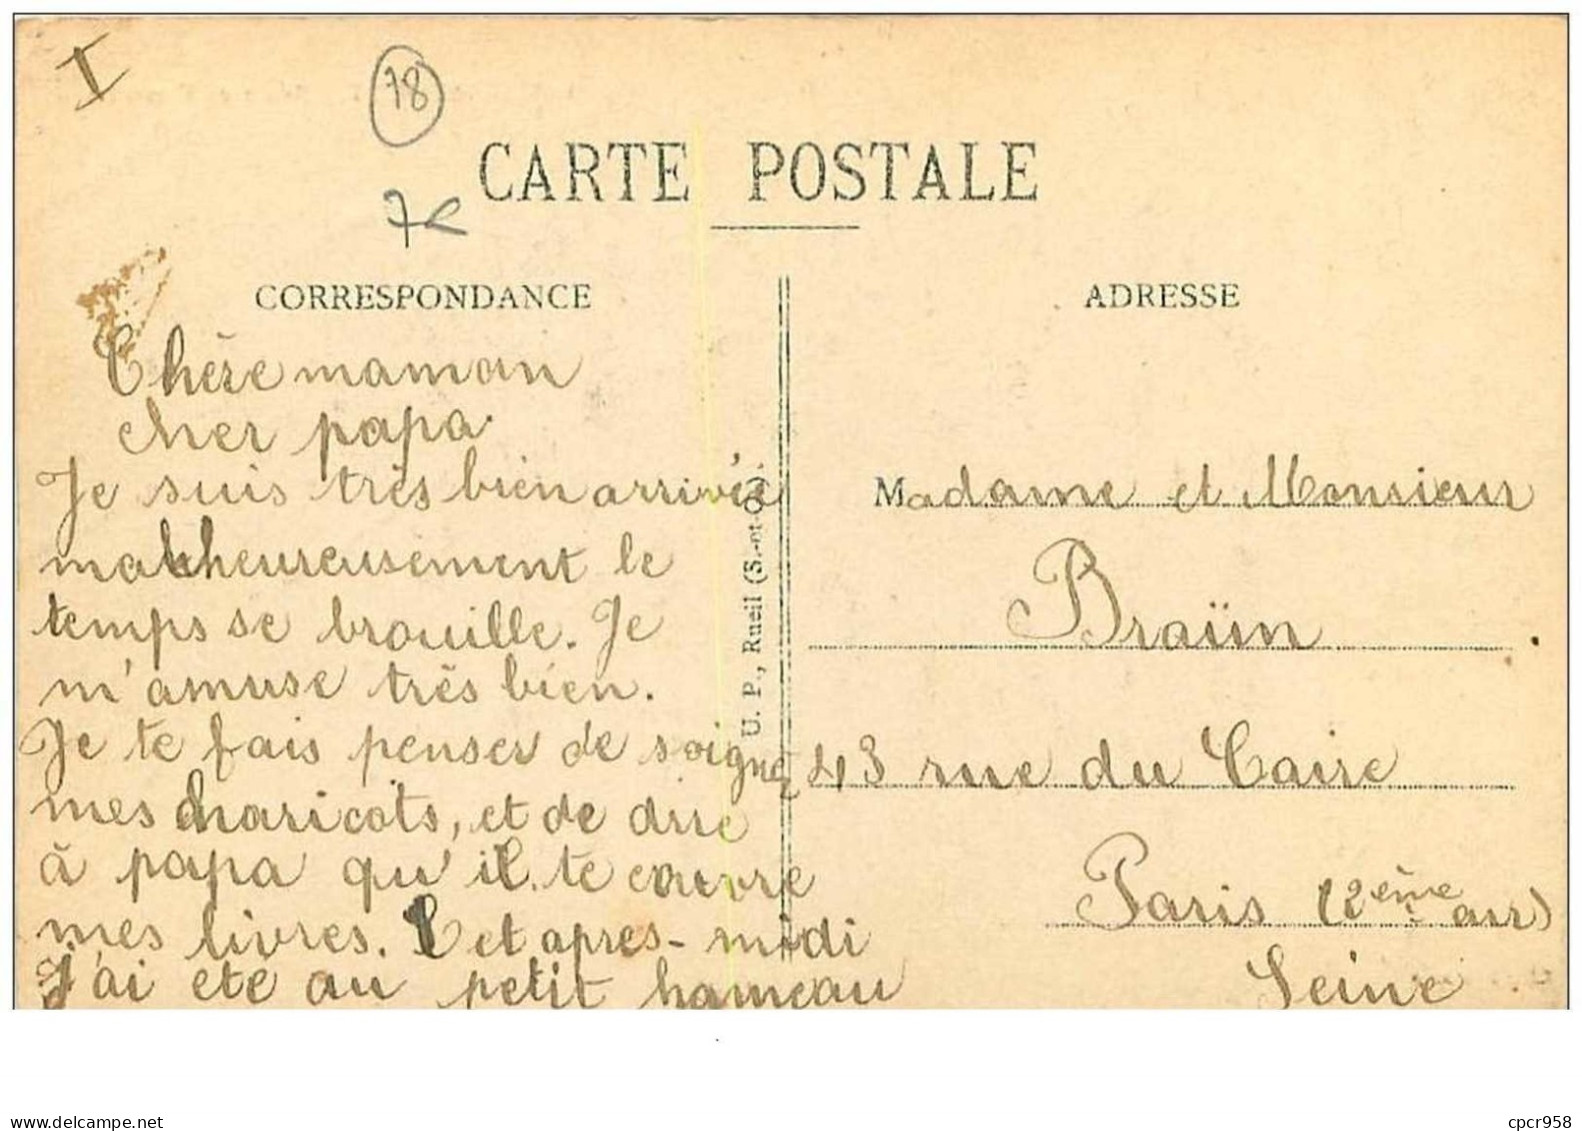 I
78
7€
CARTE POSTALE
CORRESPONDANCE
ADRESSE
Chère maman
cher papa.
Je suis très bien arrivée
malheureusement le
temps se brouille. Je
m'amuse très bien.
Je te fais penser de soigner
mes haricots, et de dire
à papa qu'il te couvre
mes livres. Cet apres-midi
J'ai eté au petit hameau
U. P., Rueil (S.-et-O.).
Madame et Monsieur
Braün
43 rue du Caire
Paris (2ème arr)
Seine
delcampe.net
cpcr958